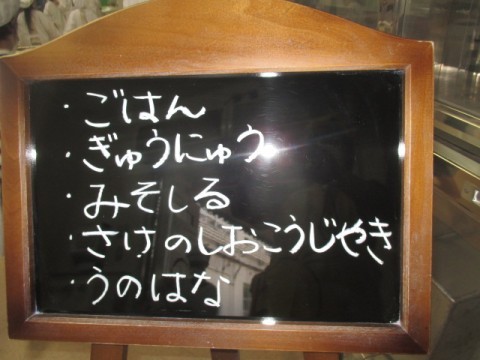 ・ごはん
・ぎゅうにゅう
・みそしる
・さけのしおこうじやき
・うのはな